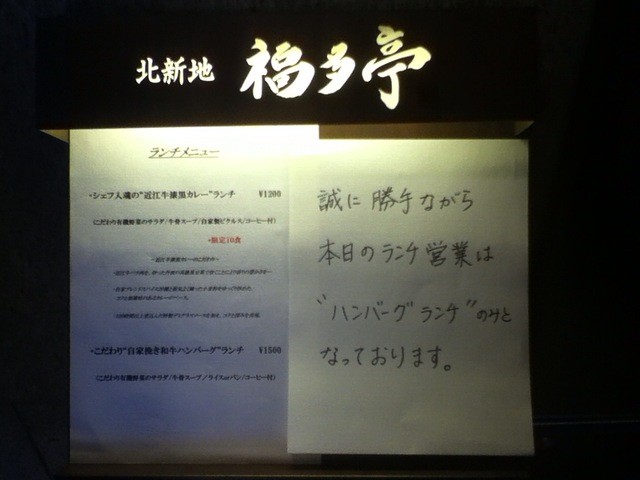 北新地 福多亭
ランチメニュー
・シェフ入魂の"近江牛漆黒カレー"ランチ ¥1200
(こだわり有機野菜のサラダ/牛骨スープ/自家製ピクルス/コーヒー付)
・限定10食
・こだわり"自家挽き和牛ハンバーグ"ランチ ¥1500
(こだわり有機野菜のサラダ/牛骨スープ/ライスorパン/コーヒー付)
誠に勝手ながら
本日のランチ営業は
"ハンバーグランチ"のみと
なっております。